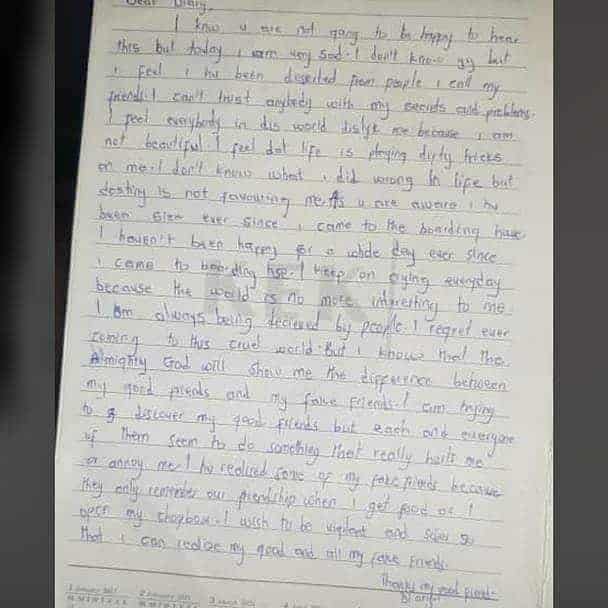 Dear Diary,
I know u are not going to be happy to hear
this but today i am very sad. I don't know y but
i feel i hv been deserted from people i call my
friends. I can't trust anybody with my secrets and problems.
I feel everybody in dis world dislyk me because i am
not beautiful. I feel dat life is playing dirty tricks
on me. I don't know what i did wrong in life but
destiny is not favouring me. As u are aware i hv
been ever since i came to the boarding house
I haven't been happy for a whole day ever since
i came to boarding hse. I keep on crying everyday
because the world is no more interesting to me.
I am always being decieved by people. I regret ever
coming to this cruel world. But i know that the
Almighty God will show me the difference between
my good friends and my fake friends. I am trying
to discover my good friends but each and everyone
of them seem to do something that really hurts me
or annoy me. I hv realized some of my fake friends because
they only remember our friendship when i get food or I
open my chopbox. I wish to be vigilant and so
that i can realize my good and all my fake friends.
Thanks my good friend
Diary
1 January 2021
2 January 2021
3